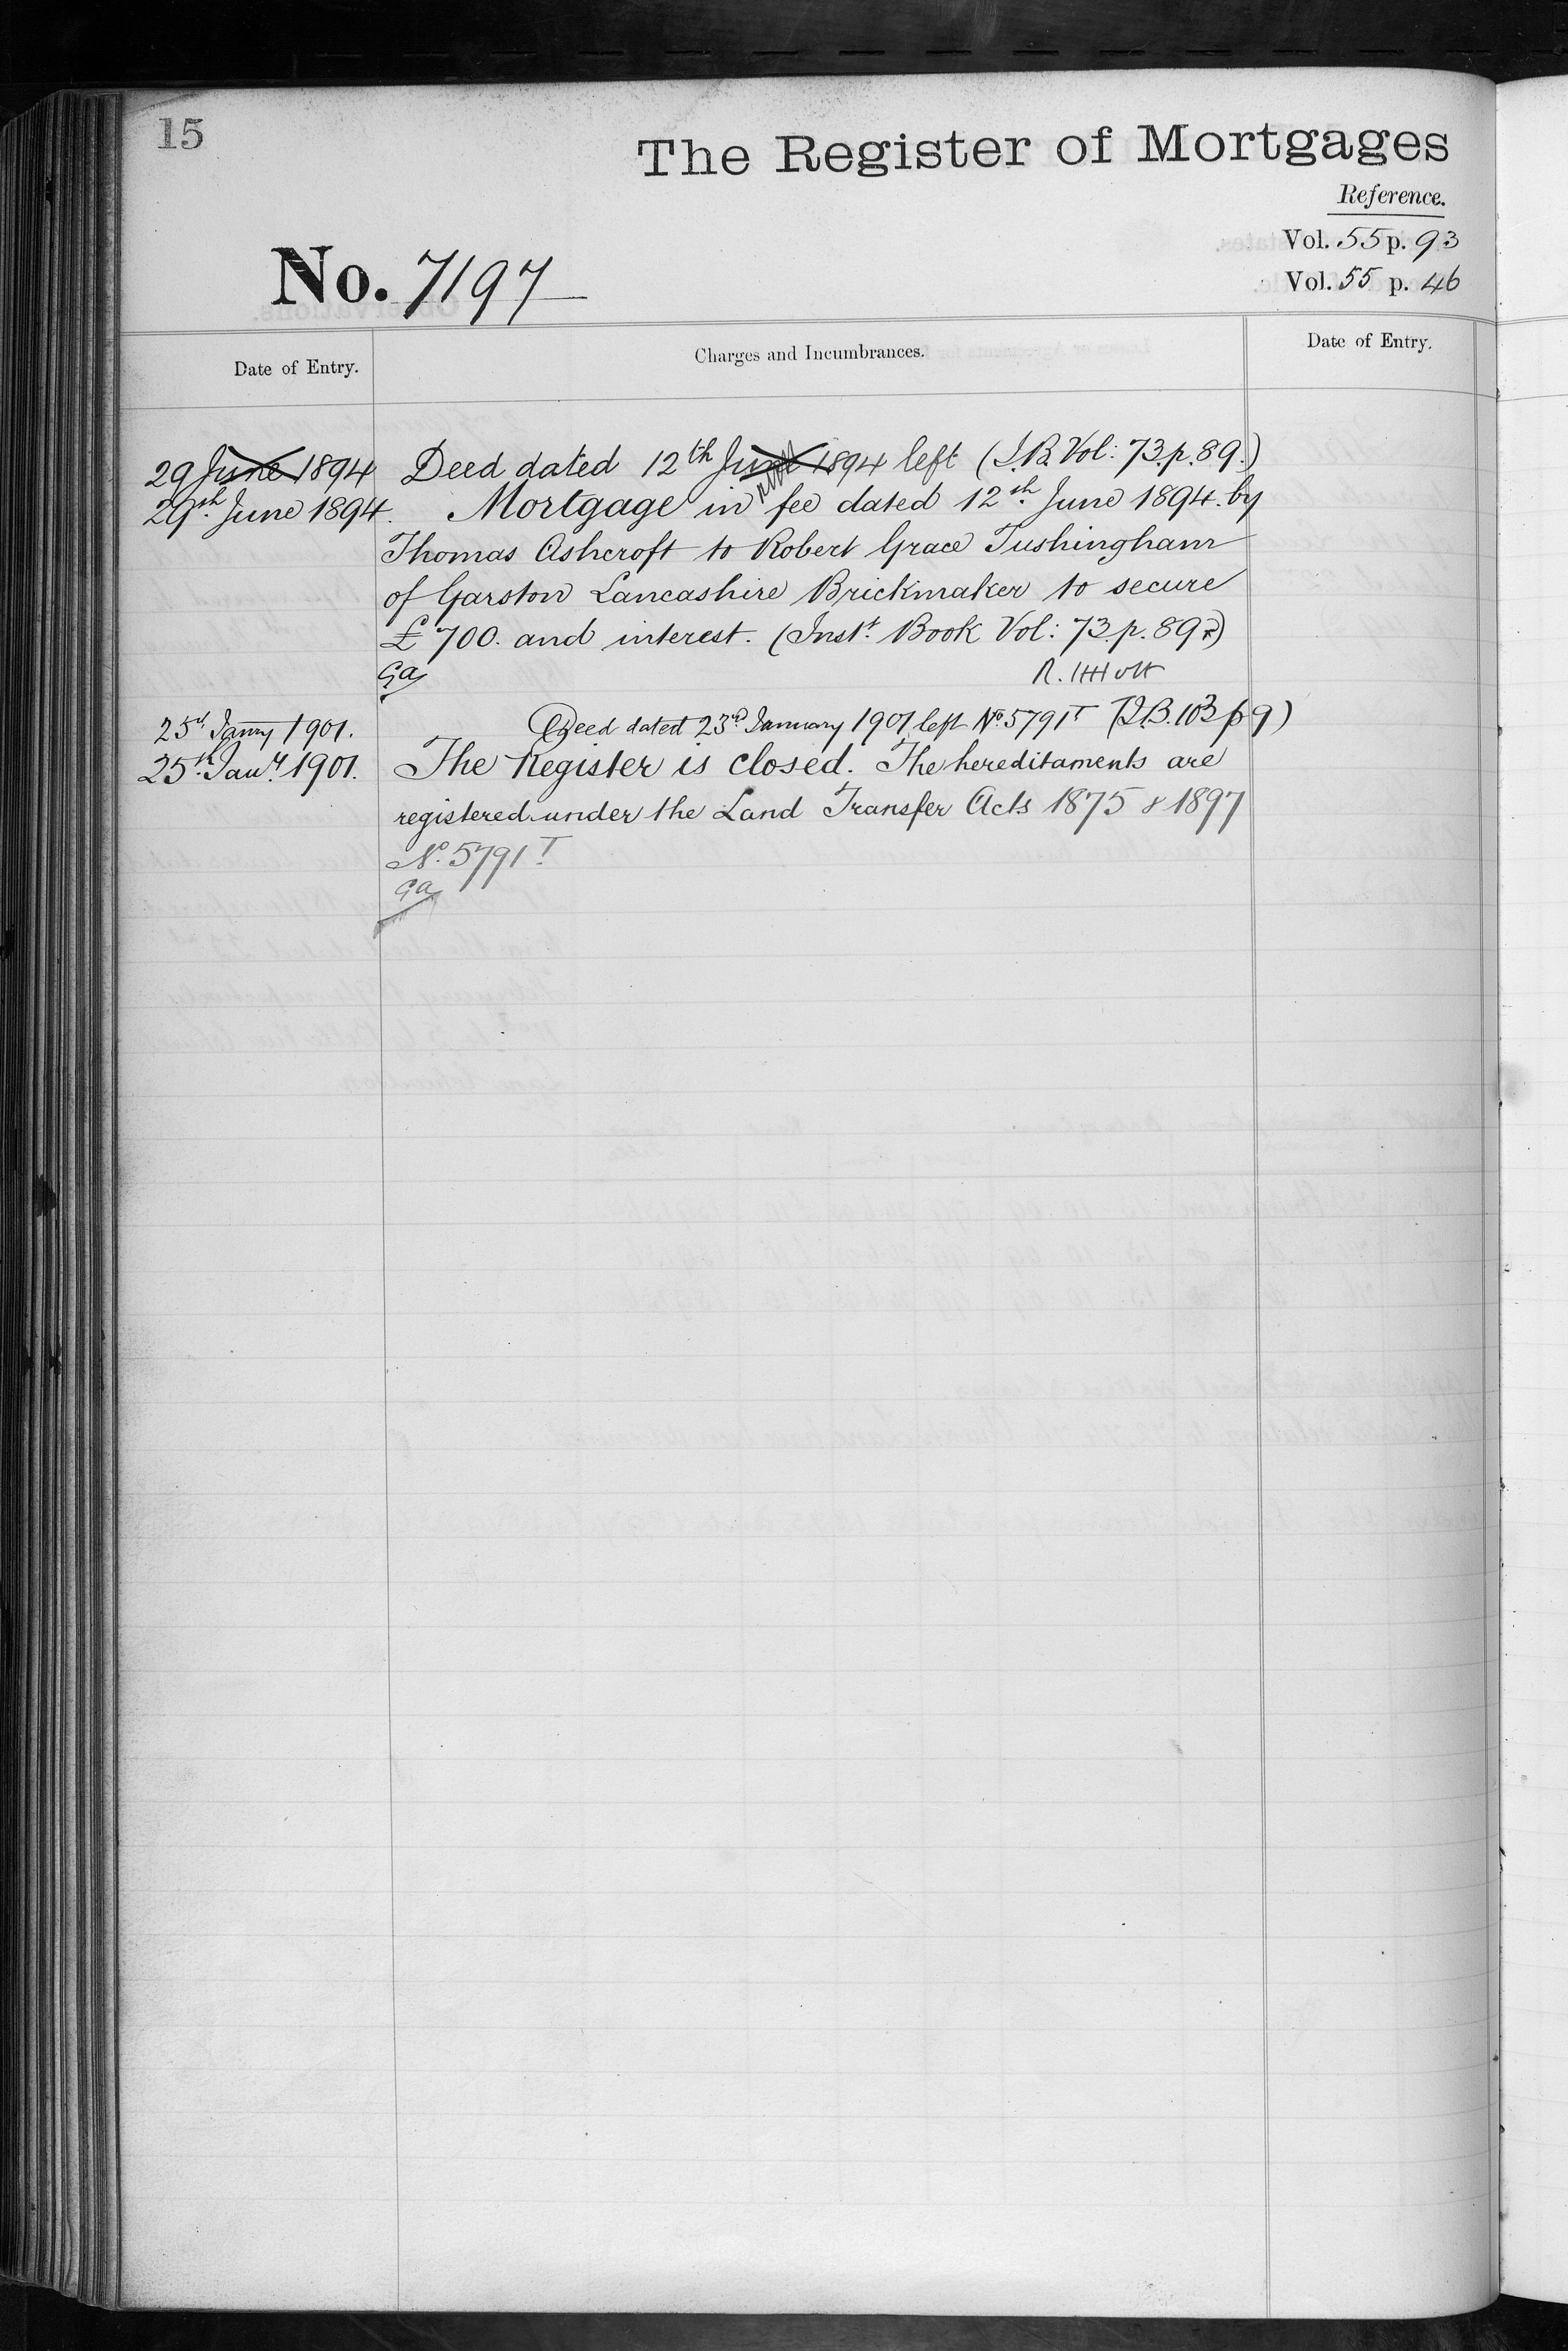 15
The Register of Mortgages
Reference.
Vol. 55 p. 93
Vol. 55 p. 46
No. 7197
Date of Entry.
Charges and Incumbrances.
Date of Entry.
29 June 1894 Deed dated 12th June 1894 left (I.B. Vol: 73. p. 89.)
29th June 1894. Mortgage in fee dated 12th June 1894. by
Thomas Ashcroft to Robert Grace Tushingham
of Garston Lancashire Brickmaker to secure
£700. and interest. (Inst. Book Vol: 73. p. 89.)
Ga
25th Janry 1901. Deed dated 23rd January 1901 left No. 5791T (I.B. 103 p 9)
25th Jany. 1901. The Register is closed. The hereditaments are
registered under the Land Transfer Acts 1875 & 1897
No. 5791T
Ga